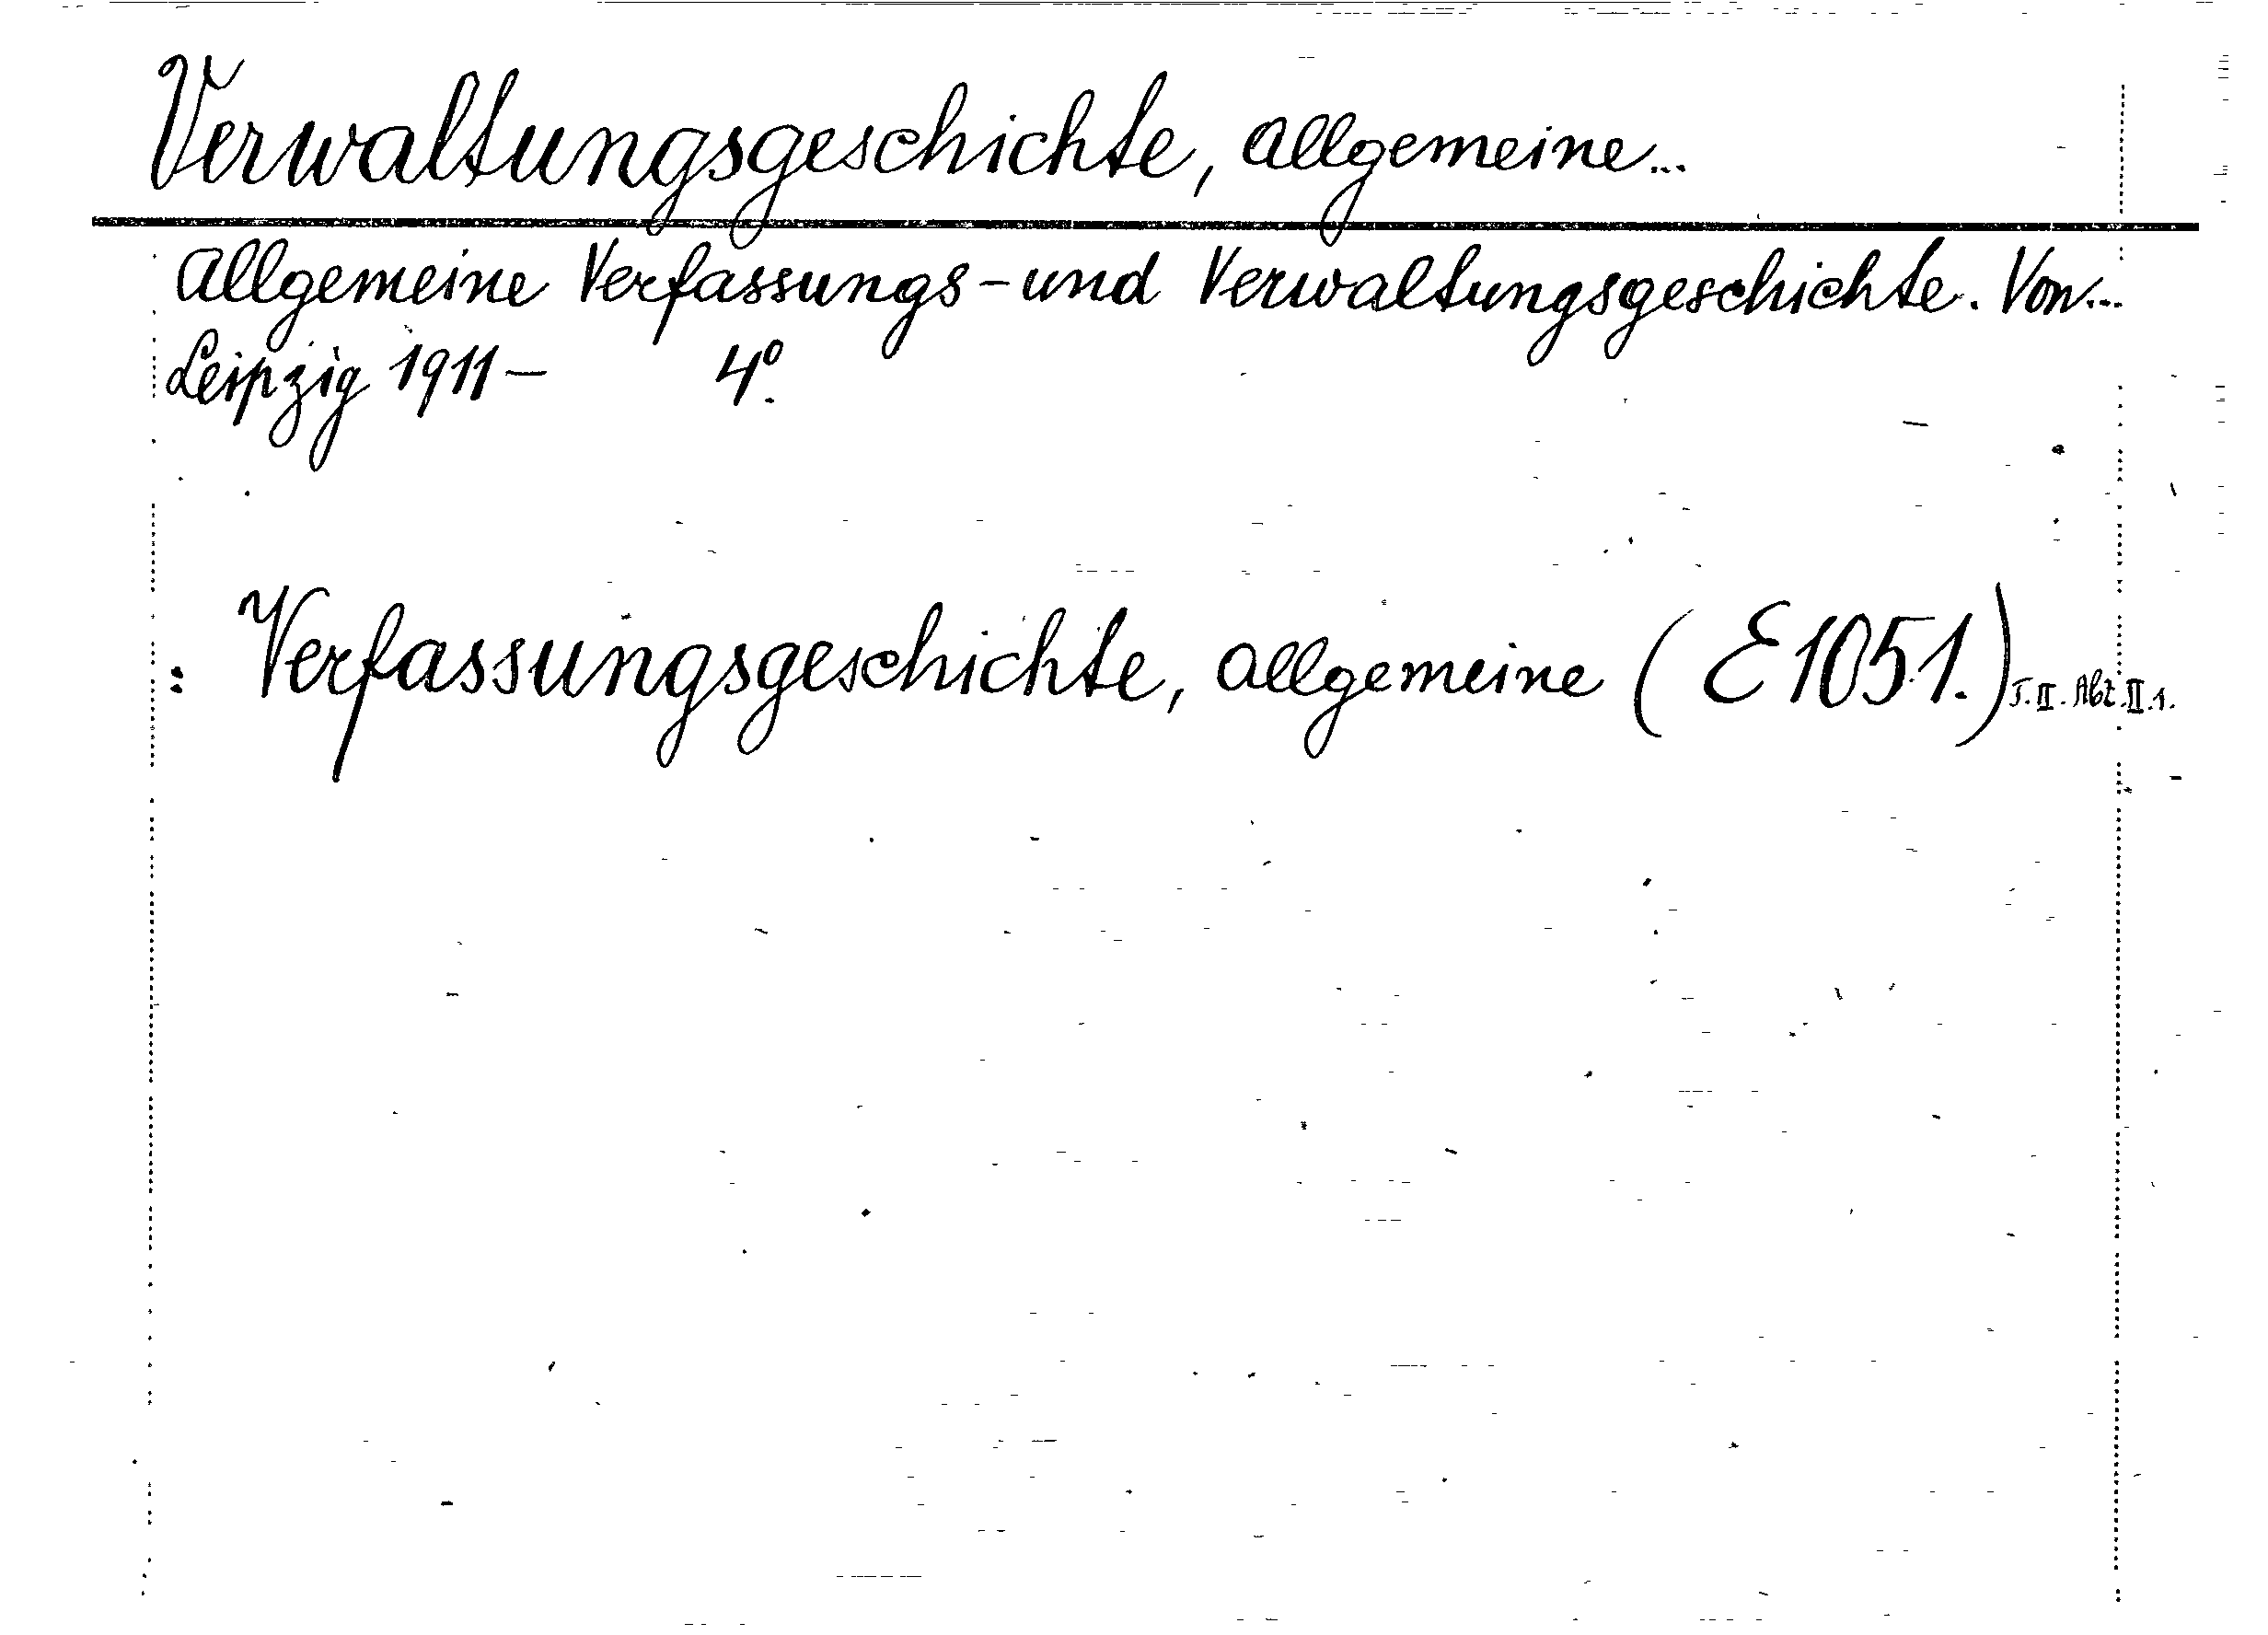 Verwaltungsgeschichte, allgemeine...
Allgemeine Verfassungs- und Verwaltungsgeschichte. Von...
Leipzig 1911- 4°.
: Verfassungsgeschichte, allgemeine (E1051.) T. II. Abt. II.1.